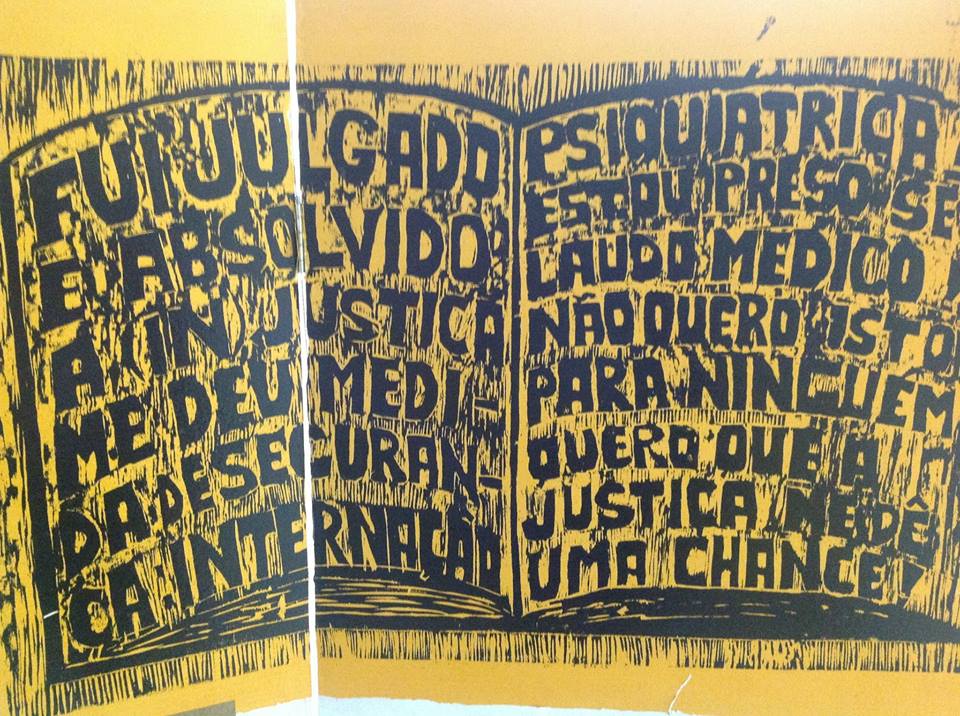 FUI JULGADO
E ABSOLVIDO:
A INJUSTIÇA
ME DEU MEDI-
DA DE SEGURAN-
ÇA: INTERNAÇÃO
PSIQUIÁTRICA
ESTOU PRESO SE
LAUDO MÉDICO
NÃO QUERO ISTO
PARA NINGUÉM
QUERO QUE A
JUSTIÇA ME DÊ
UMA CHANCE!